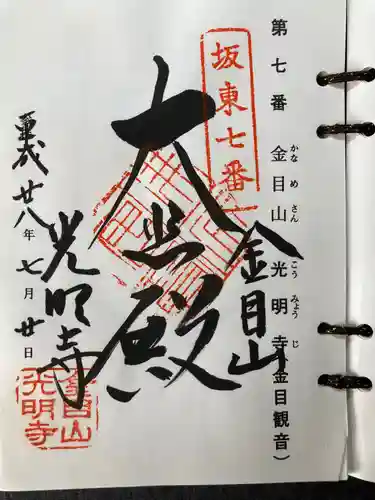 第七番 金目山光明寺(金目観音)
かなめさん こうみょうじ
坂東七番
金目山
大悲殿
光明寺
平成廿八年七月廿日
金目山
光明寺